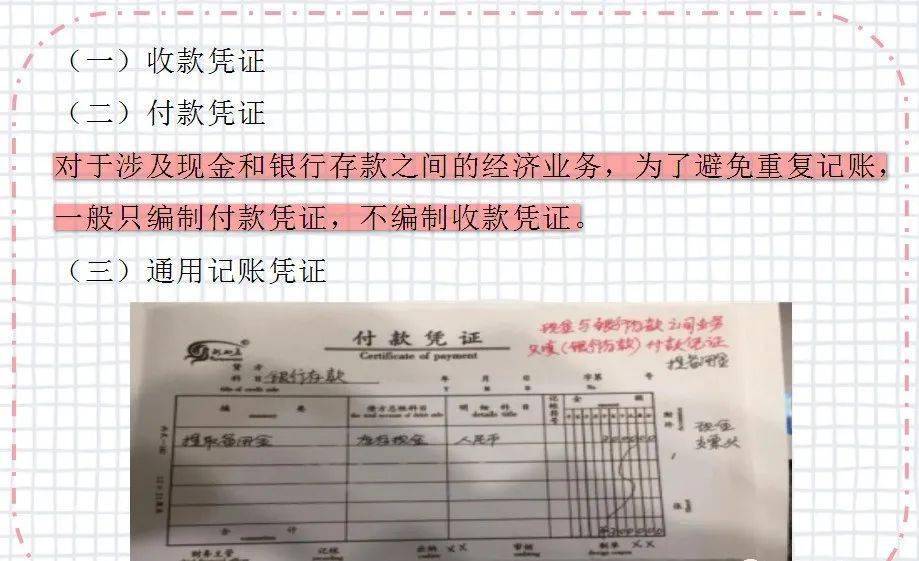 （一）收款凭证
（二）付款凭证
对于涉及现金和银行存款之间的经济业务，为了避免重复记账，
一般只编制付款凭证，不编制收款凭证。
（三）通用记账凭证
付款凭证
Certificate of payment
现金与银行存款之间业务
只填(银行存款)付款凭证
提备用金
贷方
科目 银行存款
年 月 日
字第 号
摘 要 借方总账科目 明细科目 记账符号 金 额
提取备用金 库存现金 人民币
现金
支票头
附件
张
合 计
财务主管 记账 出纳 XX 审核 制单 XX